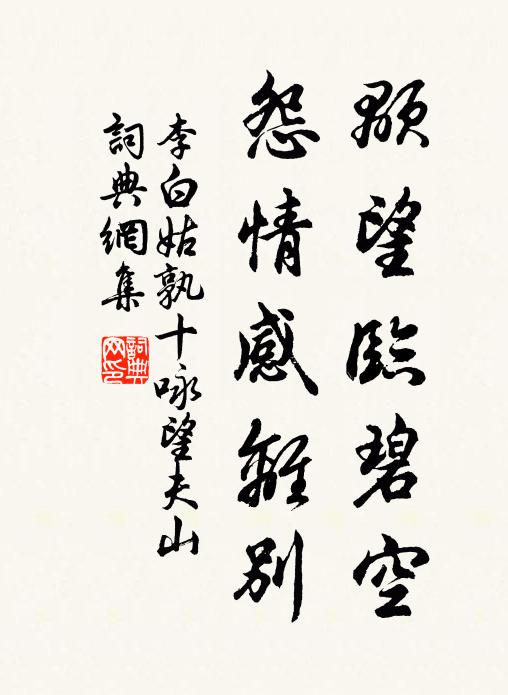 顒望臨碧空
怨情感離別
李白姑孰十咏望夫山
詞典網集
詞典
网印